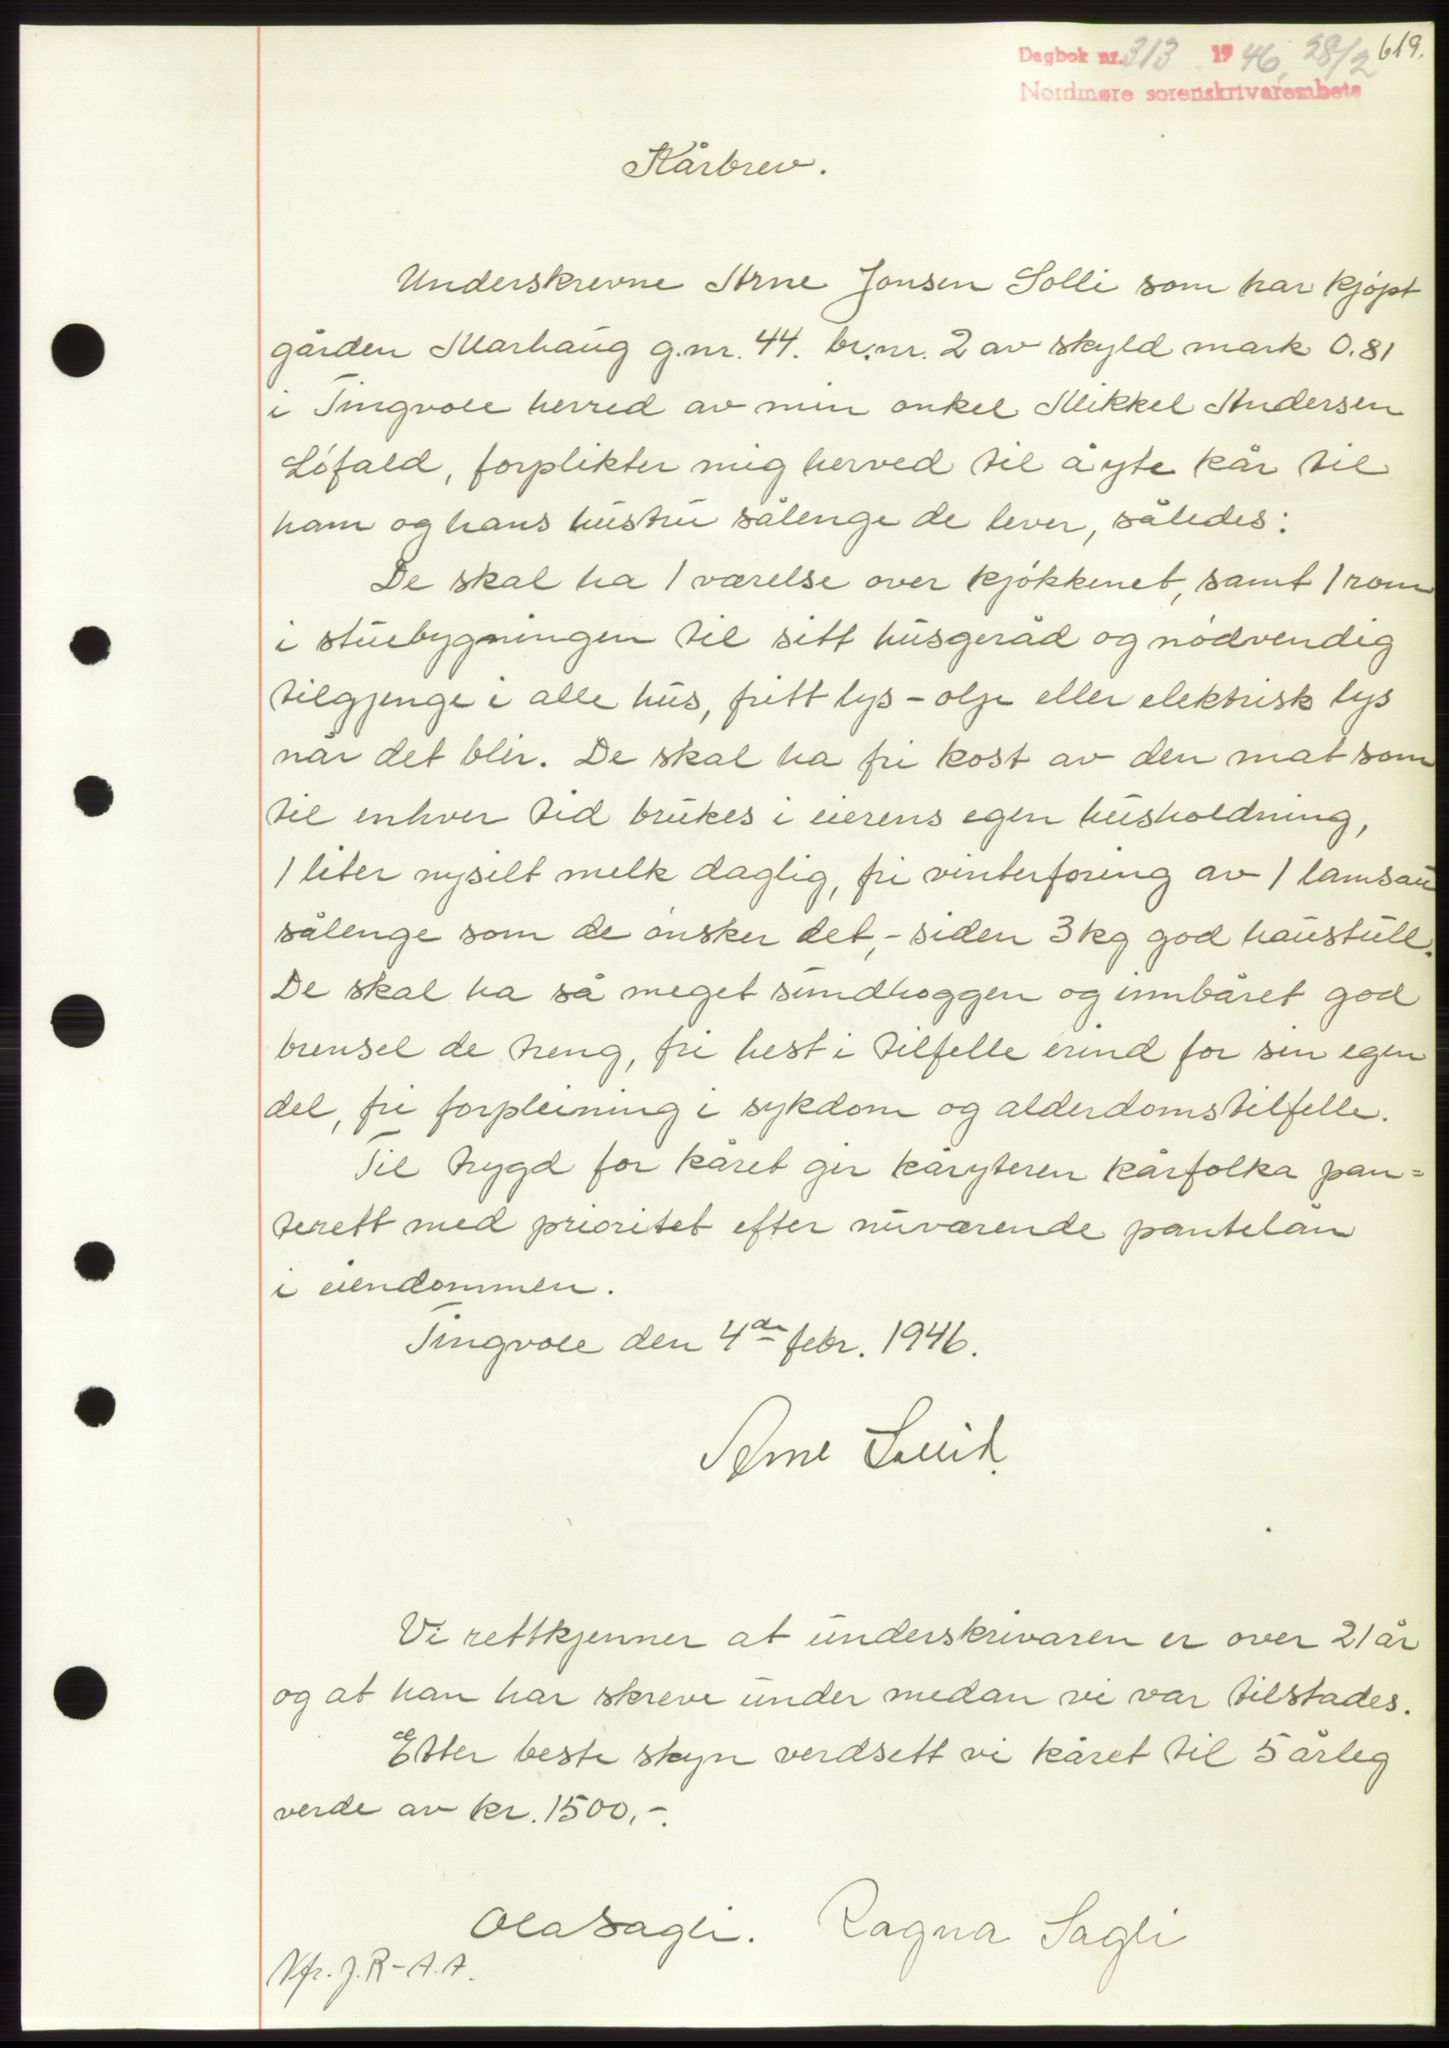 619.
Dagbok nr. 313 1946, 28/2
Nordmøre sorenskrivarembete
Kårbrev.
Underskrevne Arne Jonsen Solli som har kjøpt
gården Marhaug g.nr. 44. br.nr. 2 av skyld mark 0.81
i Tingvoll herred av min onkel Mikkel Andersen
Løfald, forplikter mig herved til å yte kår til
ham og hans hustru sålenge de lever, således:
De skal ha 1 værelse over kjøkkenet, samt 1 rom
i stuebygningen til sitt husgeråd og nødvendig
tilgjenge i alle hus, fritt lys - olje eller elektrisk lys
når det blir. De skal ha fri kost av den mat som
til enhver tid brukes i eierens egen husholdning,
1 liter nysilt melk daglig, fri vinterforing av 1 lamsau
sålenge som de ønsker det, - siden 3 kg god haustull.
De skal ha så meget sundhoggen og innbåret god
brensel de treng, fri hest i tilfelle erind for sin egen
del, fri forpleining i sykdom og alderdomstilfelle.
Til trygd for kåret gir kåryteren kårfolka pan=
terett med prioritet efter nuværende pantelån
i eiendommen.
Tingvoll den 4de febr. 1946.
Arne
Vi rettkjenner at underskrivaren er over 21 år
og at han har skreve under medan vi var tilstades.
Etter beste skyn verdsett vi kåret til 5 årleg
verde av kr. 1500,-.
Ola Sagli. Ragna Sagli
Vfr. J.R - A.A.